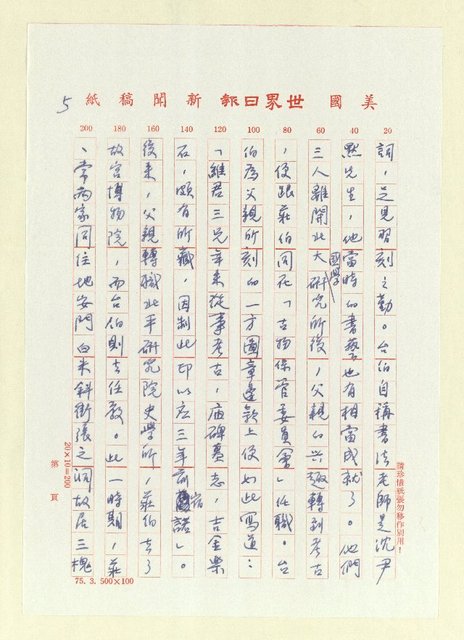 美國世界日報新聞稿紙
5
20 40 60 80 100 120 140 160 180 200
詞，足見習刻之勤。台伯自稱書法老師是沈尹
默先生，他當時的書藝也有相當成就了。他們
三人離開北大國學研究所後，父親的興趣轉到考古
，便跟莊伯同在「古物保管委員會」任職。台
伯為父親所刻的一方圖章邊款上便如此寫道：
「維君三兄年來從事考古，廟碑墓志，吉金樂
石，頗有所藏，因刻此印以三年前宿諾」。
後來，父親轉職北平研究院史學所，莊伯去了
故宮博物院，而台伯則去任教。此一時期，莊
、常兩家同住地安門白米斜街張之洞故居三槐
請珍惜紙張勿移作別用！
20×10=200
第 頁
75. 3. 500×100